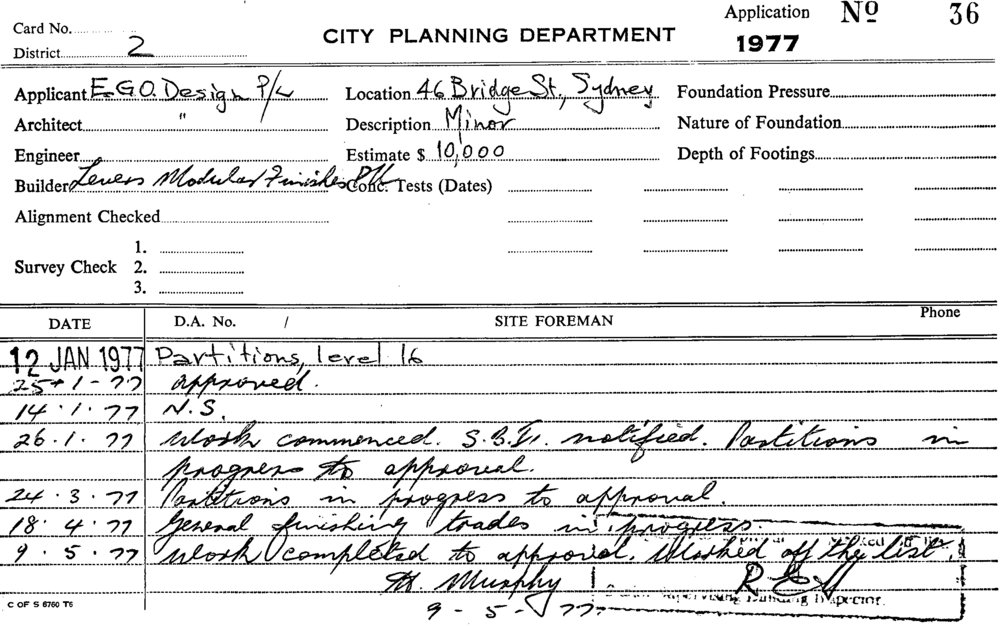 Card No.
Application No 36
District 2
CITY PLANNING DEPARTMENT
1977
Applicant E.G.O. Design P/L
Location 46 Bridge St., Sydney
Foundation Pressure
Architect "
Description Minor
Nature of Foundation
Engineer
Estimate $ 10,000
Depth of Footings
Builder Levers Modular Finishes P/L
Conc. Tests (Dates)
Alignment Checked
1.
Survey Check 2.
3.
DATE D.A. No. / SITE FOREMAN Phone
12 JAN 1977 Partitions, level 16
25-1-77 approved.
14.1.77 N.S.
26.1.77 Work commenced. S.B.I. notified. Partitions in
progress to approval.
24.3.77 Partitions in progress to approval.
18.4.77 General finishing trades in progress.
9.5.77 Work completed to approval. Marked off the list,
Murphy
Supervising Building Inspector.
9-5-77.
C OF S 6760 T6